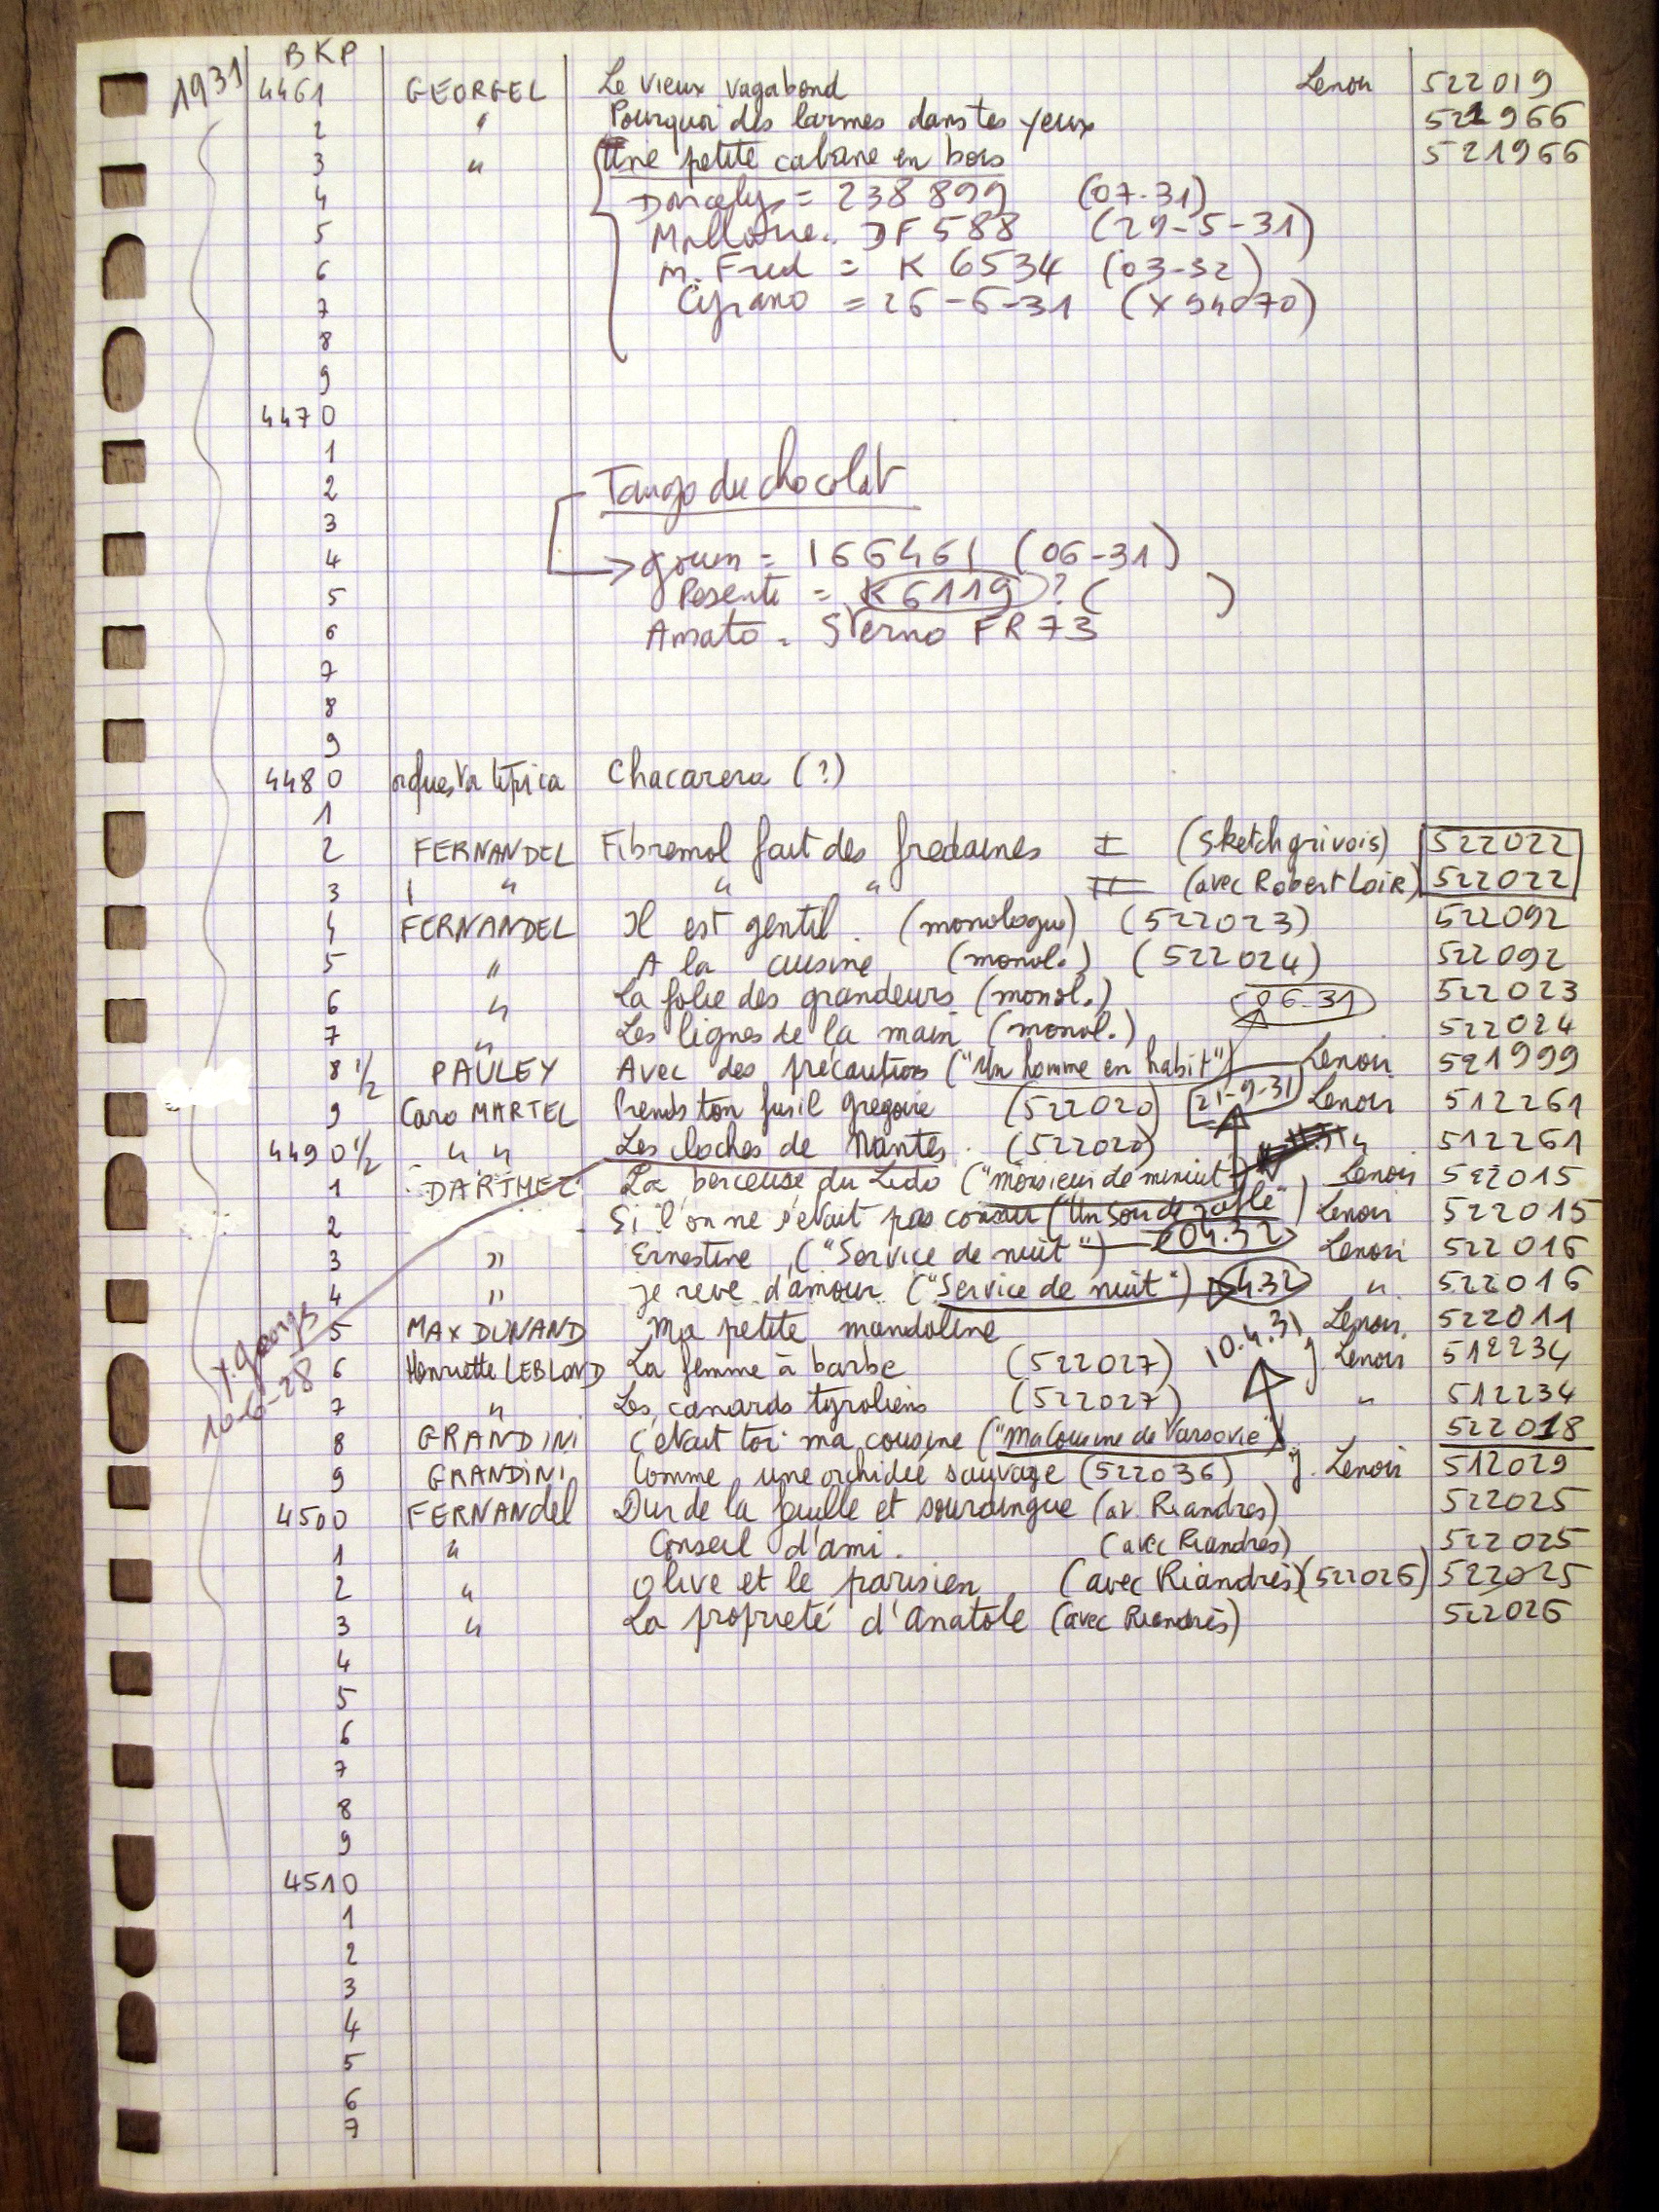 1931 BKP
4461 GEORGEL Le vieux vagabond Lenoir 522019
2 " Pourquoi des larmes dans tes yeux 521966
3 " Une petite cabane en bois 521966
4 = 238 899 (07-31)
5 DF 588 (29-5-31)
6 M. Fred = K 6534 (03-32)
7 Cyrano = 26-6-31 (X 94070)
8
9
4470
1
2 Tango du chocolat
3
4 Goun = 166461 (06-31)
5 Pesenti = K6119 ? ( )
6 Amato = Sterno FR 73
7
8
9
4480 orquesta tipica Chacarera (?)
1
2 FERNANDEL Fibremol fait des fredaines I (Sketch grivois) 522022
3 " " " II (avec Robert Loir) 522022
4 FERNANDEL Il est gentil. (monologue) (522023) 522092
5 " A la cuisine (monol.) (522024) 522092
6 " La folie des grandeurs (monol.) 522023
7 " Les lignes de la main (monol.) 06-31 522024
8 1/2 PAULEY Avec des précautions ("Un homme en habit") Lenoir 521999
9 Caro MARTEL Prends ton fusil Gregoire (522020) 21-9-31 Lenoir 512261
4490 1/2 " " Les cloches de Nantes. (522020) " 512261
1 DARTHEZ La berceuse du Lido ("Monsieur de minuit") Lenoir 522015
2 Si l'on ne s'etait pas connu ("Un soir de rafle") Lenoir 522015
3 " Ernestine ("Service de nuit") 04.32 Lenoir 522016
4 " je reve d'amour ("Service de nuit") 4.32 " 522016
5 MAX DUNAND Ma petite mandoline Lenoir. 522011
6 Henriette LEBLOND La femme à barbe (522027) 10.4.31 j Lenoir 512234
7 " Les canards tyroliens (522027) " 512234
+ Georgs
10-6-28
8 GRANDINI C'etait toi ma cousine ("Ma Cousine de Varsovie") 522018
9 GRANDINI Comme une orchidée sauvage (522036) j. Lenoir 512029
4500 FERNANdel Dur de la feuille et sourdingue (av. Riandrès) 522025
1 " Conseil d'ami. (avec Riandrès) 522025
2 " Olive et le parisien (avec Riandrès) (522026) 522025
3 " La propriété d'Anatole (avec Riandrès) 522026
4
5
6
7
8
9
4510
1
2
3
4
5
6
7